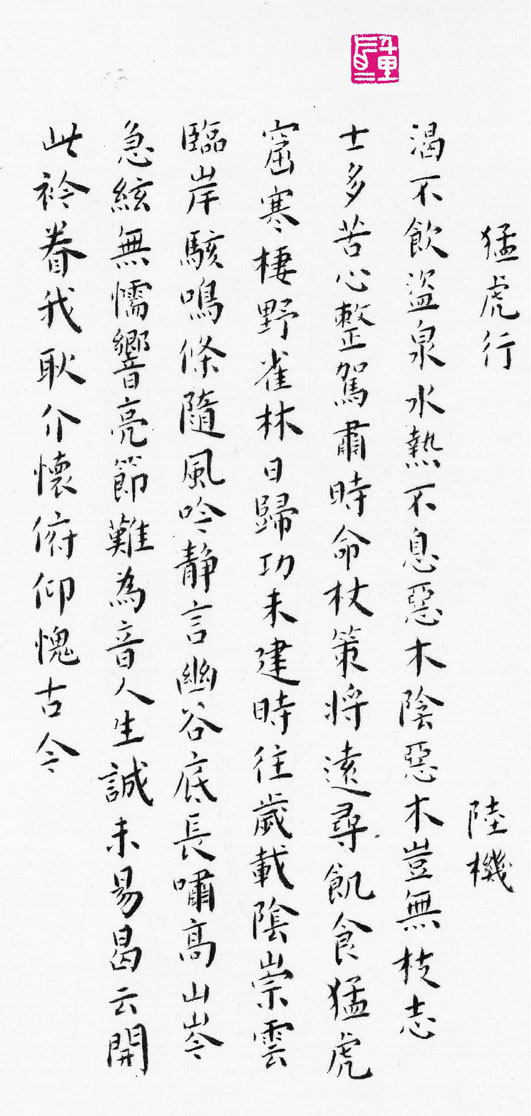 猛虎行 陸機
渴不飲盜泉水熱不息惡木陰惡木豈無枝志
士多苦心整駕肅時命杖策將遠尋飢食猛虎
窟寒棲野雀林日歸功未建時往歲載陰崇雲
臨岸駭鳴條隨風吟静言幽谷底長嘯高山岑
急絃無懦響亮節難為音人生誠未易曷云開
此衿眷我耿介懷俯仰愧古今